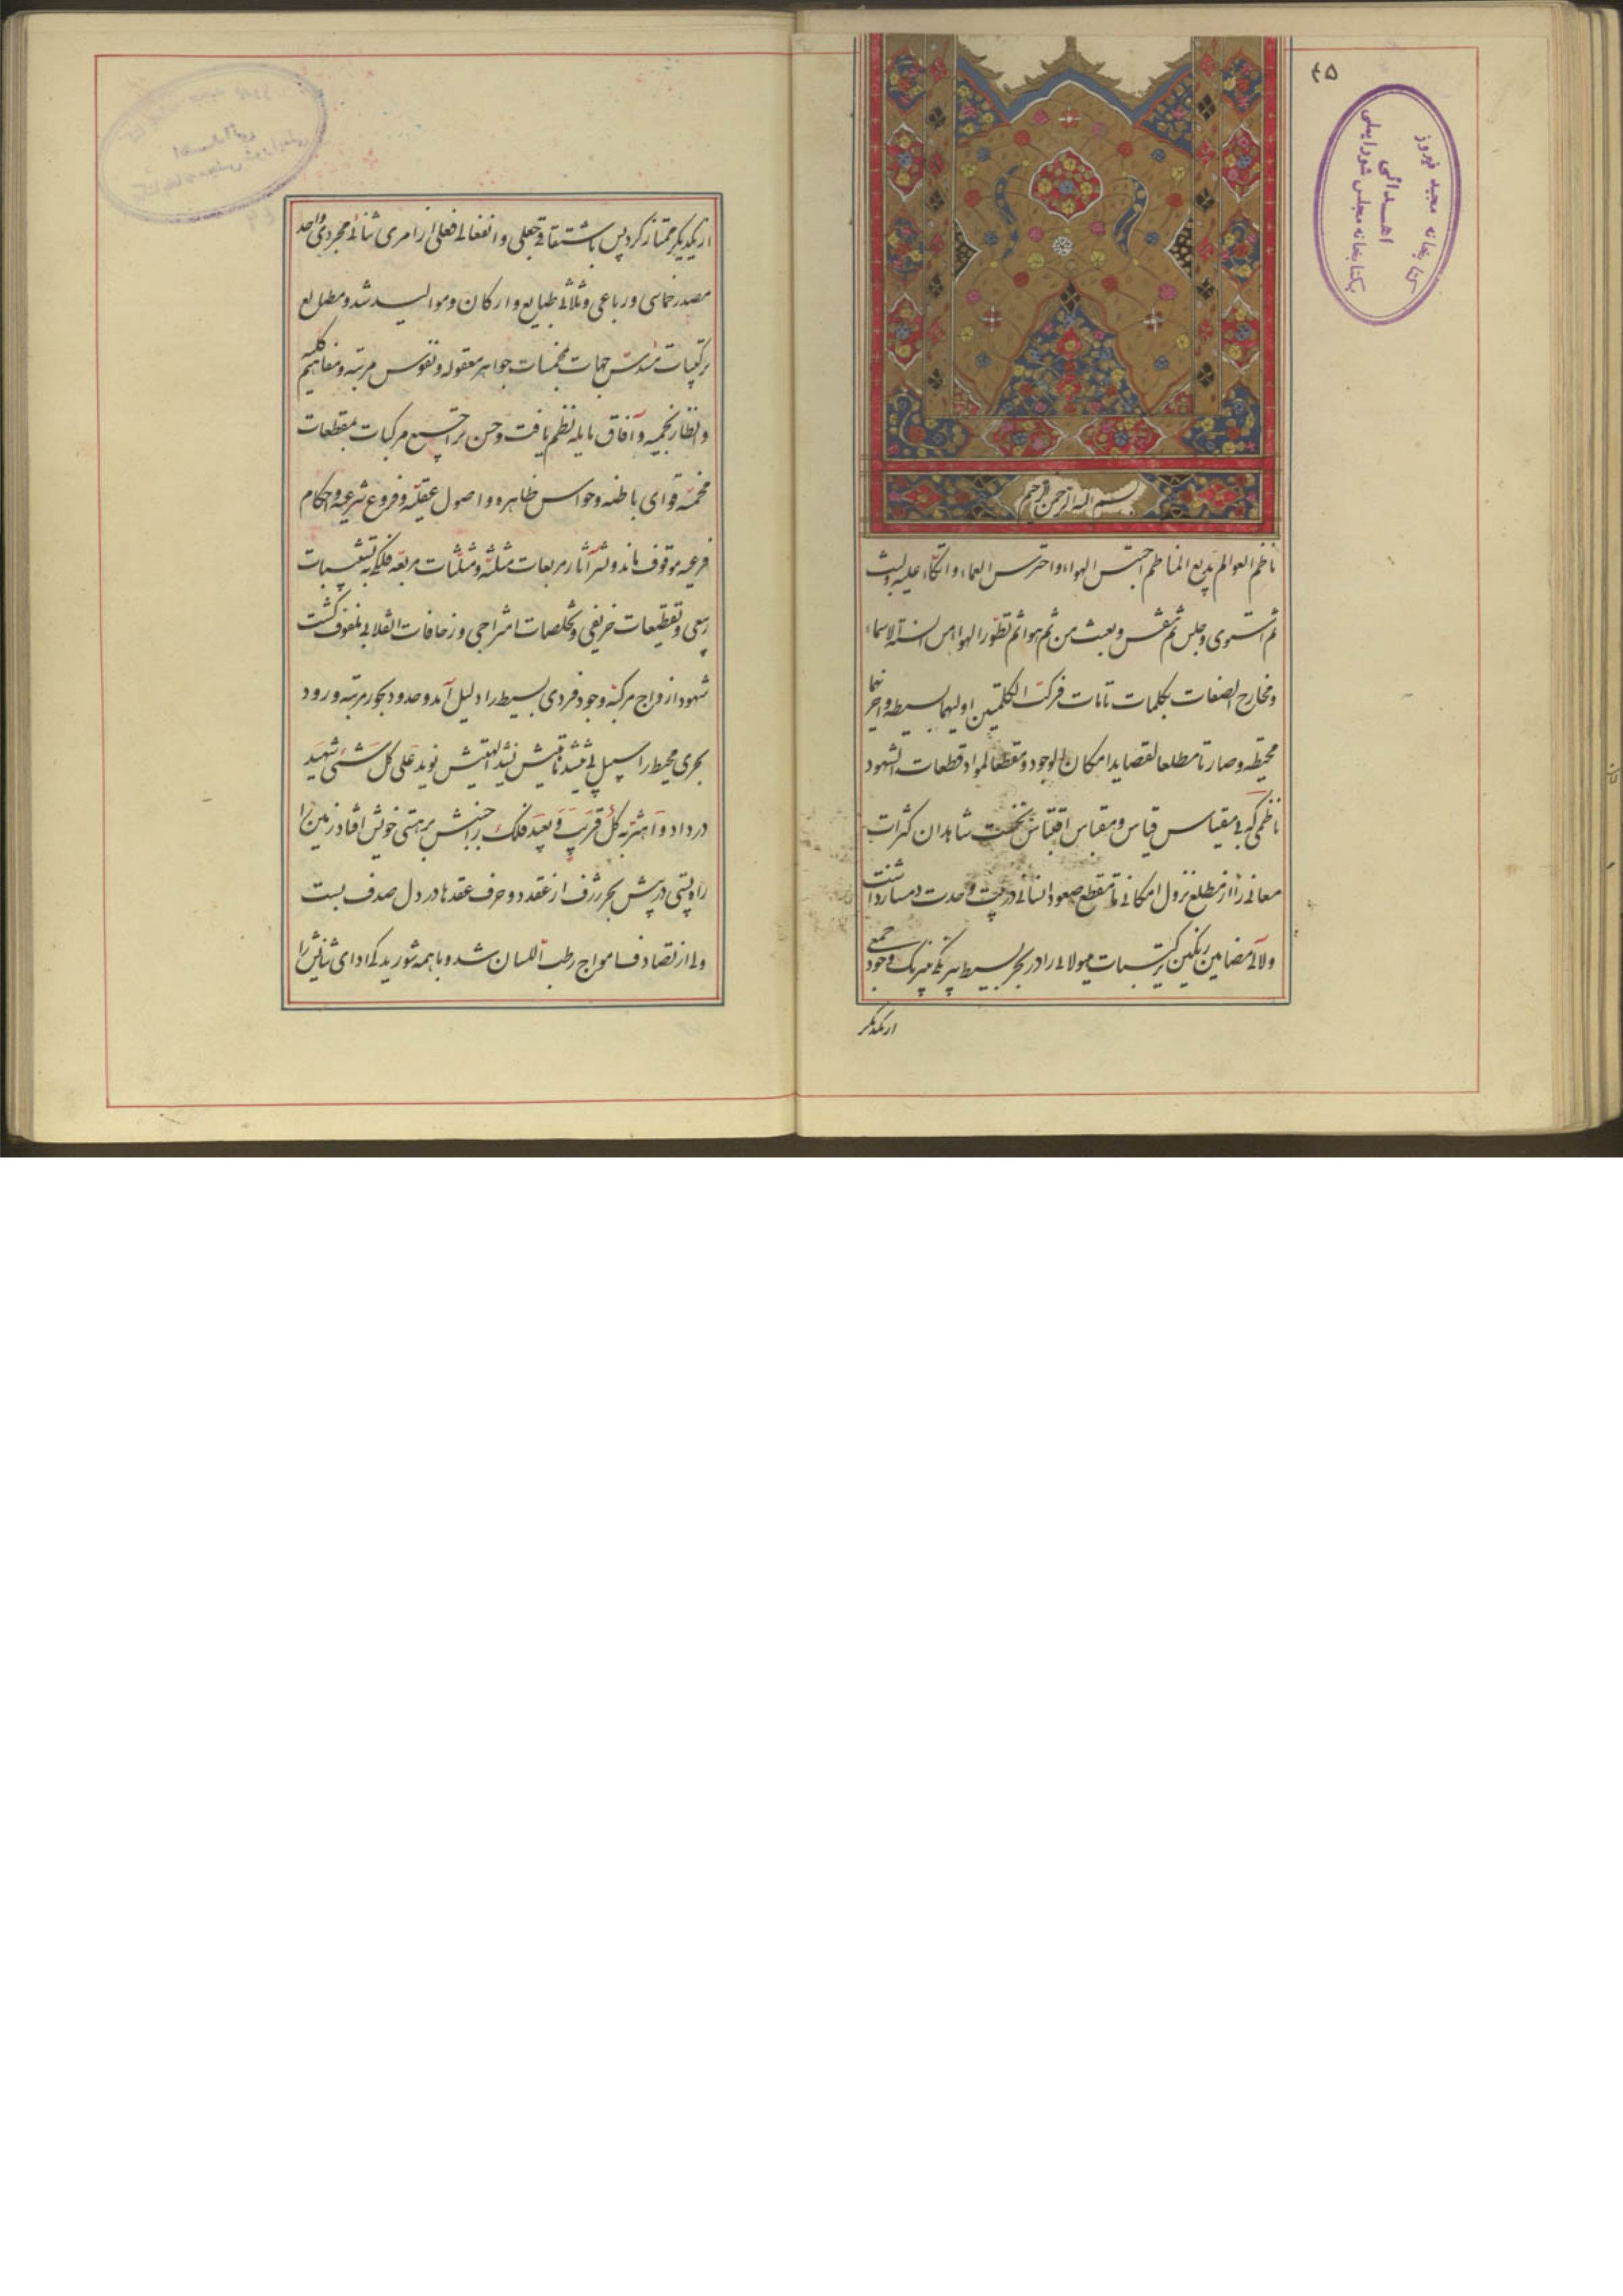 ٤٥
کتابخانه مجید فیروز
اهدائی
بکتابخانه مجلس شورایملی
بسم الله الرحمن الرحیم
ناظم العوالم بدیع المناظم احتبس الهواء واحترس العماء واتکاء علیه ولبث
ثم استوی وجلس ثم تنفس وبعث من ثم هواثم تطور الهوا من السنة الاسماء
ومخارج الصفات بکلمات تامات فرکت الکلمتین اولیهما بسیطه واخریهما
محیطه وصارتا مطلعا لقصاید امکان الوجود ومقطعا لمواد قطعات الشهود
ناظمی که بی مقیاس قیاس ومقباس اقتباس نخست شاهدان کثرات
معانی را از مطلع نزول امکانی تا مقطع صعود انسانی در بیت وحدت دمساز داشت
ولآلی مضامین رنگین ترتیبات هیولائی را در بحر بسیط بیرنگی نیرنگ وجود جمعی
ازیکدیگر
ازیکدیگر ممتاز کرد پس باشتقاق جعلی وانفعالی فعلی از امری ثنائی مجردی واحد
مصدر خماسی ورباعی وثلاثی طبایع وارکان وموالید شد ومطالع
ترکیبات مسدس جهات بخمسات جواهر معقوله ونفوس مرتبه ومفاهیم کلیه
وانظار نجمیه وآفاق مایله نظم یافت وحسن مرکبات بمقطعات
مخمسه قوای باطنه وحواس ظاهره واصول عقلیه وفروع شرعیه واحکام
فرعیه موقوف ماند ونثر آثار مربعات مثلثه ومثلثات مربعه فلکی به تشبیبات
ربیعی وتقطیعات خریفی وتخلصات امتزاجی وزحافات انقلابی ملفوف گشت
شهود ازواج مرکبه وجود فردی بسیط را دلیل آمد وحدود بحور مرتبه ورود
بحری محیط را سبیل نویدعلی کل شئی شهید
درداد کل قریب وبعید فلک را جنبش برهستی خویش افتاد زمین را
را پستی درپیش بحر ژرف از عقد دوحرف عقدها در دل صدف بست
ولی از تصادف امواج رطب اللسان شد وباهمه شورید که ادای ثنایش را